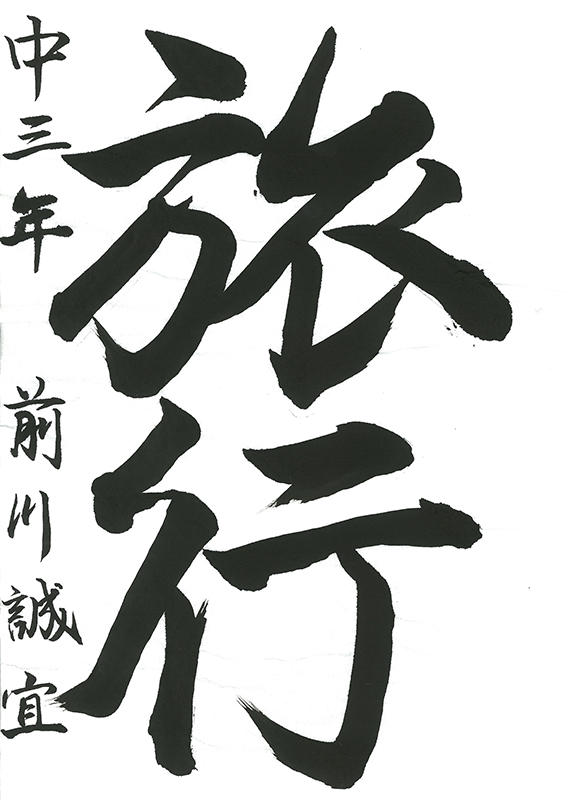 旅行
中三年 前川誠宜